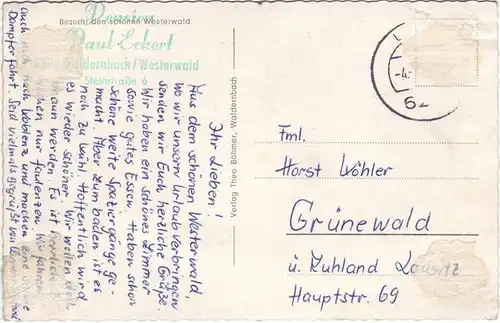 Besucht den schönen Westerwald
Pension
Paul Eckert
Waldernbach/Westerwald
Steinstraße 6
Ihr Lieben!
Aus dem schönen Westerwald,
wo wir unsern Urlaub verbringen
senden wir Euch herzliche Grüße.
Wir haben ein schönes Zimmer
sowie gutes Essen. Haben schon
schöne weite Spaziergänge ge-
macht. Aber zum baden ist es
noch zu kühl. Hoffentlich wird
es wieder schöner. Wir wollen
braun werden. Es ist
nur faulenzen. Wir fahren
auch noch nach Koblenz und machen eine
Dampferfahrt. Seid vielmals gegrüßt von
Verlag Theo Böhmer, Waldernbach
-4.
62
Fml.
Horst Wöhler
Grünewald
ü. Ruhland Lausitz
Hauptstr. 69